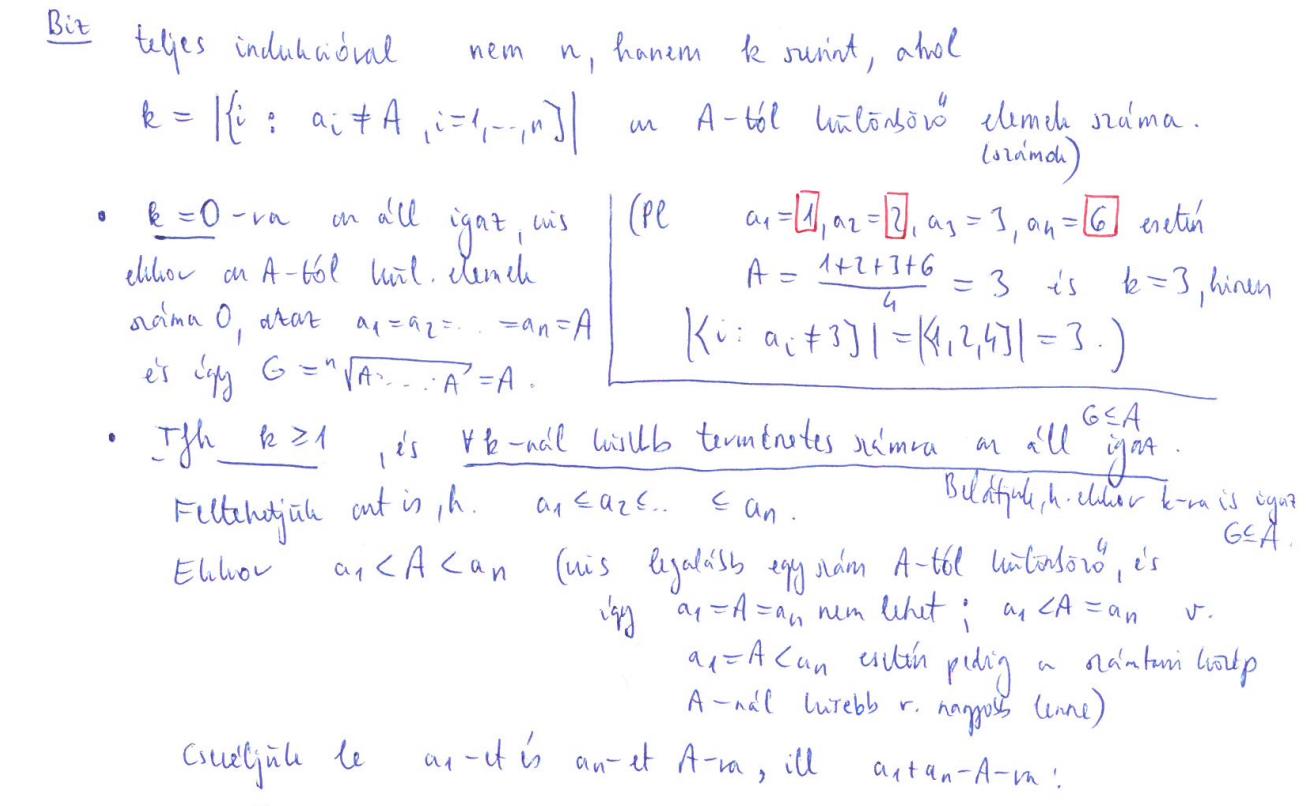 Biz teljes indukcióval nem n, hanem k szerint, ahol
k = |{i : a_i ≠ A, i=1,...,n}| az A-tól különböző elemek száma.
(számok)
• k=0-ra az áll igaz, uis
ekkor az A-tól kül. elemek
száma 0, azaz a_1=a_2=..=a_n=A
és így G = ⁿ√(A·...·A) = A.
(Pl a_1=1, a_2=2, a_3=3, a_4=6 esetén
A = (1+2+3+6)/4 = 3 és k=3, hiszen
|{i: a_i≠3}| = |{1,2,4}| = 3.)
• Tfh k≥1, és ∀ k-nál kisebb természetes számra az áll igaz.
G≤A
Feltehetjük azt is, h. a_1≤a_2≤.. ≤a_n.
Belátjuk, h. ekkor k-ra is igaz
G≤A.
Ekkor a_1<A<a_n (uis legalább egy szám A-tól különböző, és
így a_1=A=a_n nem lehet; a_1<A=a_n v.
a_1=A<a_n esetén pedig a számtani közép
A-nál kisebb v. nagyobb lenne)
Cseréljük le a_1-et és a_n-et A-ra, ill a_1+a_n-A-ra: